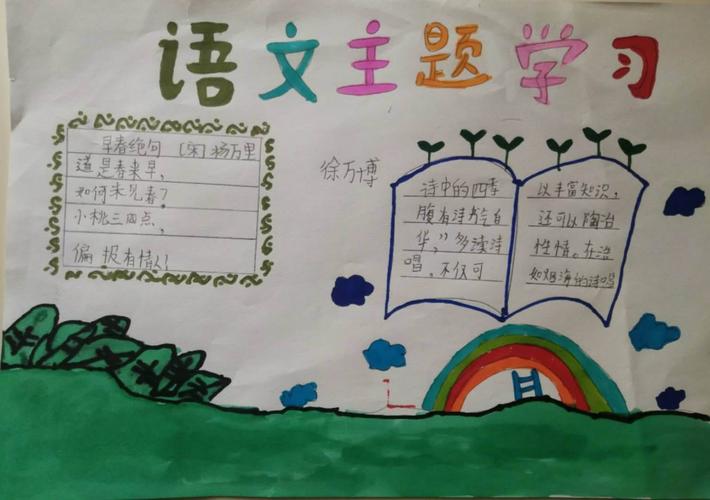 语文主题学习
早春绝句 [宋]杨万里
道是春来早,
如何未见春?
小桃三四点,
偏报有情人!
徐万博
诗中的四季
腹有诗书气自
华,"多读诗
唱,不仅可
以丰富知识,
还可以陶冶
性情。在浩
如烟海的诗